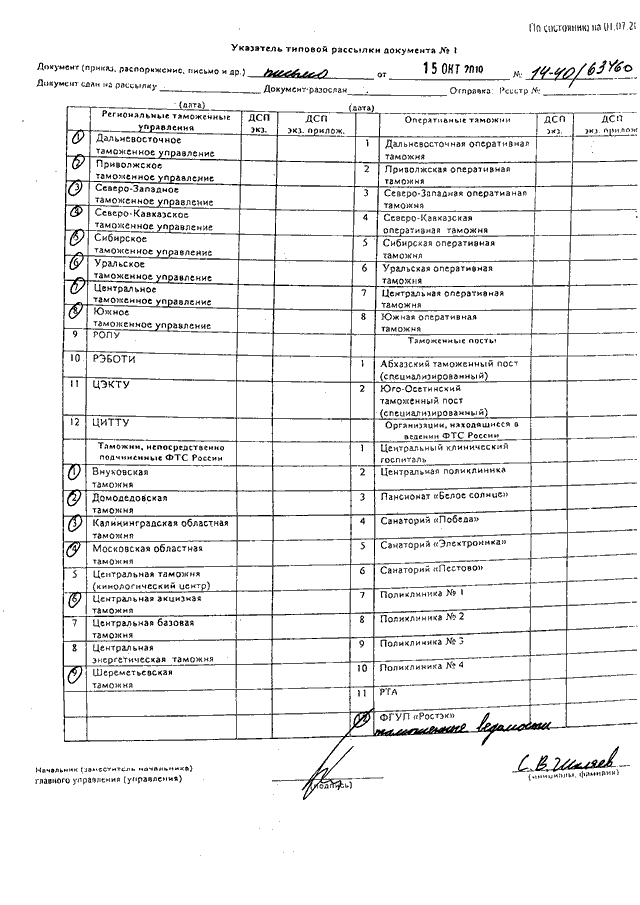 По состоянию на 01.07.20
Указатель типовой рассылки документа № 1
Документ (приказ, распоряжение, письмо и др.) письмо от 15 ОКТ 2010 № 14-40/63460
Документ сдан на рассылку Документ разослан Отправка: Реестр №
(дата) (дата)
Региональные таможенные управления ДСП экз. ДСП экз. прилож.
1 Дальневосточное
таможенное управление
2 Приволжское
таможенное управление
3 Северо-Западное
таможенное управление
4 Северо-Кавказское
таможенное управление
5 Сибирское
таможенное управление
6 Уральское
таможенное управление
7 Центральное
таможенное управление
8 Южное
таможенное управление
9 РОПУ
10 РЭБОТИ
11 ЦЭКТУ
12 ЦИТТУ
Таможни, непосредственно
подчиненные ФТС России
1 Внуковская
таможня
2 Домодедовская
таможня
3 Калининградская областная
таможня
4 Московская областная
таможня
5 Центральная таможня
(кинологический центр)
6 Центральная акцизная
таможня
7 Центральная базовая
таможня
8 Центральная
энергетическая таможня
9 Шереметьевская
таможня
Оперативные таможни ДСП экз. ДСП экз. прилож
1 Дальневосточная оперативная
таможня
2 Приволжская оперативная
таможня
3 Северо-Западная оперативная
таможня
4 Северо-Кавказская
оперативная таможня
5 Сибирская оперативная
таможня
6 Уральская оперативная
таможня
7 Центральная оперативная
таможня
8 Южная оперативная
таможня
Таможенные посты
1 Абхазский таможенный пост
(специализированный)
2 Юго-Осетинский
таможенный пост
(специализированный)
Организации, находящиеся в
ведении ФТС России
1 Центральный клинический
госпиталь
2 Центральная поликлиника
3 Пансионат «Белое солнце»
4 Санаторий «Победа»
5 Санаторий «Электроника»
6 Санаторий «Пестово»
7 Поликлиника № 1
8 Поликлиника № 2
9 Поликлиника № 3
10 Поликлиника № 4
11 РТА
12 ФГУП «Ростэк»
таможенные ведомости
Начальник (заместитель начальника)
главного управления (управления)
(подпись)
С. В. Шкляев
(инициалы, фамилия)